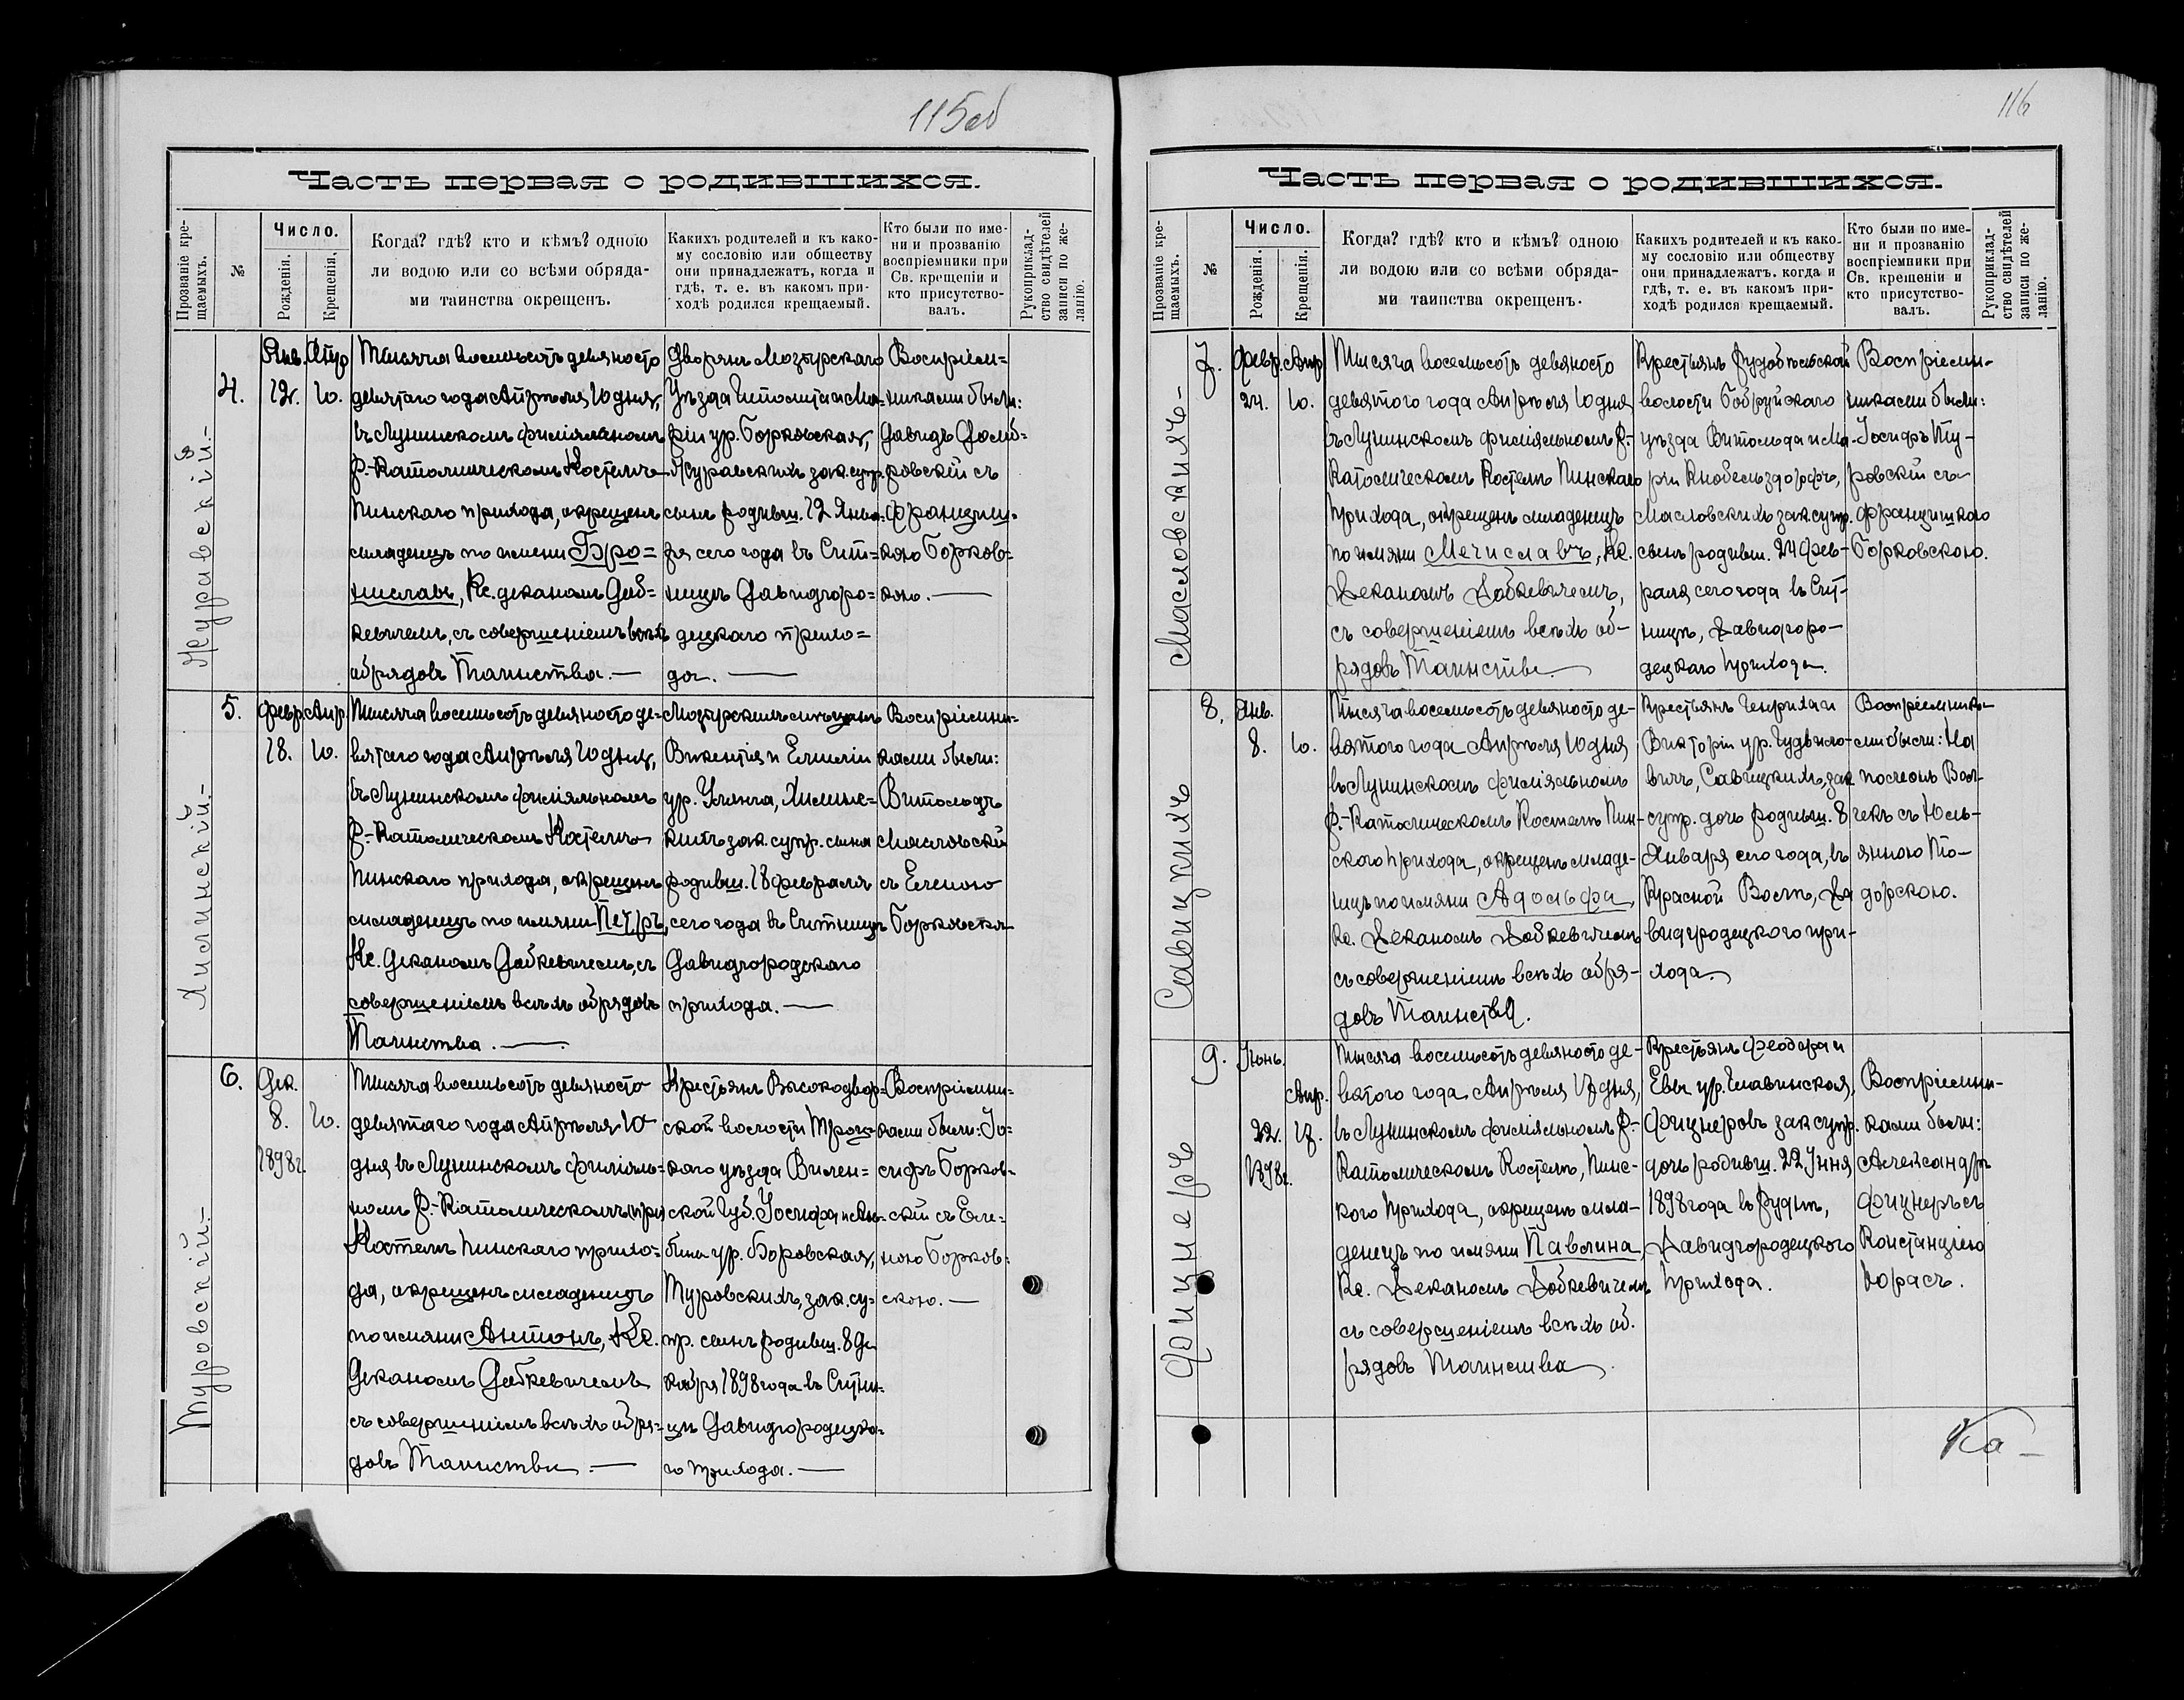 115об
Часть первая о родившихся.
Прозваніе кре-
щаемыхъ.
№
Число.
Рожденія.
Крещенія.
Когда? гдѣ? кто и кѣмъ? одною
ли водою или со всѣми обряда-
ми таинства окрещенъ.
Какихъ родителей и къ како-
му сословію или обществу
они принадлежатъ, когда и
гдѣ, т. е. въ какомъ при-
ходѣ родился крещаемый.
Кто были по име-
ни и прозванію
воспріемники при
Св. крещеніи и
кто присутство-
валъ.
Рукоприклад-
ство свидѣтелей
записи по же-
ланію.
Журавскій.-
4.
Янв.
12.
Апр
10.
Тысяча восемьсотъ девяносто
девятаго года Апрѣля 10 дня,
въ Лунинскомъ филіяльномъ
Р.-Католическомъ Костелѣ
Пинскаго прихода, окрещенъ
младенецъ по имени Бро=
ниславъ, Кс. деканомъ Доб=
кевичемъ, съ совершеніемъ всѣхъ
обрядовъ Таинства.—
Дворянъ Мозырскаго
Уѣзда Ипполита и Ма=
ріи ур. Борковская,
Журавскихъ зак. супр.
сынъ родивш. 12 Янва=
ря сего года въ Сит=
ницѣ Давидгоро=
децкаго прихо=
да.—
Воспріем=
никами были:
Давидъ Домб=
ровскій съ
Францишк=
кою Борков=
кою.—
Хилинскій.-
5.
Февр.
18.
Апр.
10.
Тысяча восемьсотъ девяносто де-
вятаго года Апрѣля 10 дня,
въ Лунинскомъ филіяльномъ
Р.-Католическомъ Костелѣ
Пинскаго прихода, окрещенъ
младенецъ по имяни Петръ,
Кс. Деканомъ Добкевичемъ, съ
совершеніемъ всѣхъ обрядовъ
Таинства.—
Мозырскимъ мѣщанъ
Викентія и Емиліи
ур. Хилинс=
кихъ зак. супр. сына
родивш. 18 февраля
сего года въ Ситницѣ
Давидгородскаго
прихода.—
Воспріемни=
ками были:
Витольдъ
Масловскій
съ Еленою
Борковска
Туровскій.-
6.
Дек.
8.
1898г.
10.
Тысяча восемьсотъ девяносто
девятаго года Апрѣля 10
дня въ Лунинскомъ филіяль=
номъ Р.-Католическомъ при
Костелѣ Пинскаго прихо=
да, окрещенъ младенецъ
по имяни Антонъ, Кс.
Деканомъ Добкевичемъ
съ совершеніемъ всѣхъ обря=
довъ Таинства.—
Крестьянъ Высокодвор=
ской волости Троц=
каго уѣзда Вилен=
ской Губ. Іосифа и Аль=
бины ур. Боровская,
Туровскихъ, зак. су=
пр. сынъ родивш. 8 Де
кабря 1898 года въ Ситни=
цѣ Давидгородецка=
го прихода.—
Воспріемни=
ками были: Іо=
сифъ Борков=
скій съ Еле=
ною Борков=
скою.—
116
Часть первая о родившихся.
Прозваніе кре-
щаемыхъ.
№
Число.
Рожденія.
Крещенія.
Когда? гдѣ? кто и кѣмъ? одною
ли водою или со всѣми обряда-
ми таинства окрещенъ.
Какихъ родителей и къ како-
му сословію или обществу
они принадлежатъ. когда и
гдѣ, т. е. въ какомъ при-
ходѣ родился крещаемый.
Кто были по име-
ни и прозванію
воспріемники при
Св. крещеніи и
кто присутство-
валъ.
Рукоприклад-
ство свидѣтелей
записи по же-
ланію.
Масловскихъ-
7.
Февр.
24.
Апр
10.
Тысяча восемьсотъ девяносто
девятого года Апрѣля 10 дня
въ Лунинскомъ филіяльномъ Р.-
Католическомъ Костелѣ Пинскаго
прихода, окрещенъ младенецъ
по имяни Мечиславъ, Кс.
Деканомъ Добкевичемъ,
съ совершеніемъ всѣхъ об-
рядовъ Таинства.
Крестьянъ Рудобѣльской
волости Бобруйскаго
уѣзда Витольда и Ма-
ріи Кнобельздорфъ,
Масловскихъ зак. супр.
сынъ родивш. 24 фев-
раля сего года въ Сит-
ницѣ, Давидгоро-
децкаго прихода.
Воспріемн-
никами были:
Іосифъ Ту-
ровскій съ
Францишкою
Борковскою.
Савицкихъ
8.
Янв.
8.
10.
Тысяча восемьсотъ девяносто де-
вятого года Апрѣля 10 дня
въ Лунинскомъ филіяльномъ
Р.-Католическомъ Костелѣ Пин-
скаго прихода, окрещенъ младе-
нецъ по имяни Адольфа,
Кс. Деканомъ Добкевичемъ
съ совершеніемъ всѣхъ обря-
довъ Таинства.
Крестьянъ Генриха и
Викторіи ур. Гудвило-
вичъ, Савицкихъ, зак
супр. дочь родивш. 8
Января сего года, въ
Красной Волѣ, Да
видгродецкого при-
хода.
Воспріемника-
ми были: На
полеонъ Вол-
чекъ съ Юль-
янною То-
дорскою.
Фицнеръ
9.
Іюнь.
22.
1898г.
Апр.
17.
Тысяча восемьсотъ девяносто де-
вятого года Апрѣля 17 дня,
въ Лунинскомъ филіяльномъ Р-
Католическомъ Костелѣ, Пинс-
кого прихода, окрещенъ мла-
денецъ по имяни Павлина
Кс. Деканомъ Добкевичемъ
съ совершеніемъ всѣхъ об.
рядовъ Таинства.
Крестьянъ Феодора и
Евы ур. Главинская,
Фицнеровъ зак супр.
дочь родивш. 22 Іюня
1898 года въ Рудни,
Давидгородецкого
Прихода.
Воспріемни-
ками были:
Александръ
Фицнеръ съ
Констанціею
Юрасъ.